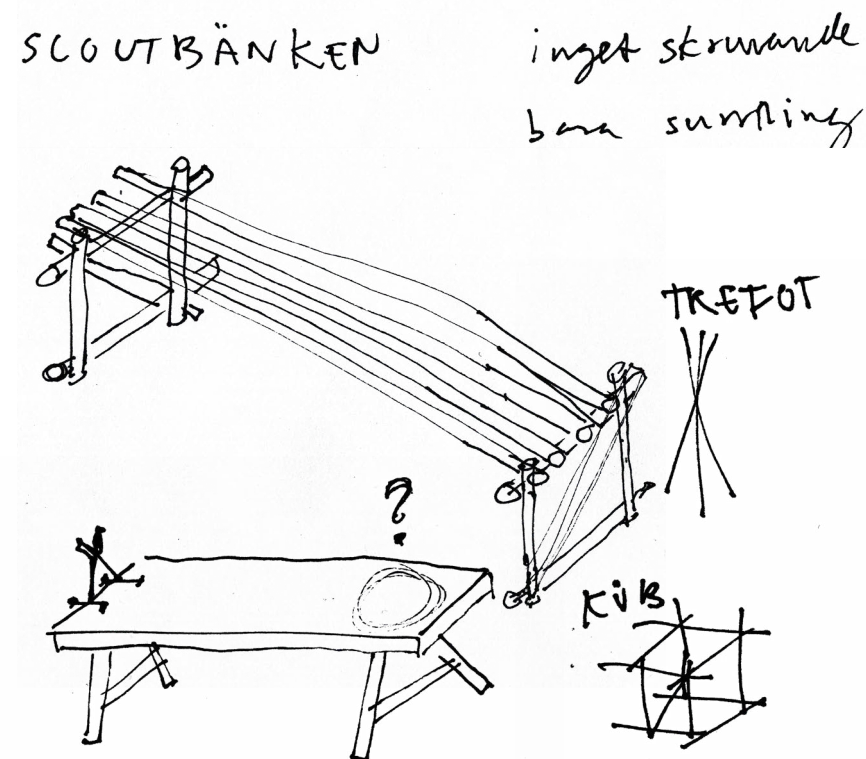 SCOUTBÄNKEN
inget skruvande
bara surrning
TREFOT
?
KUB